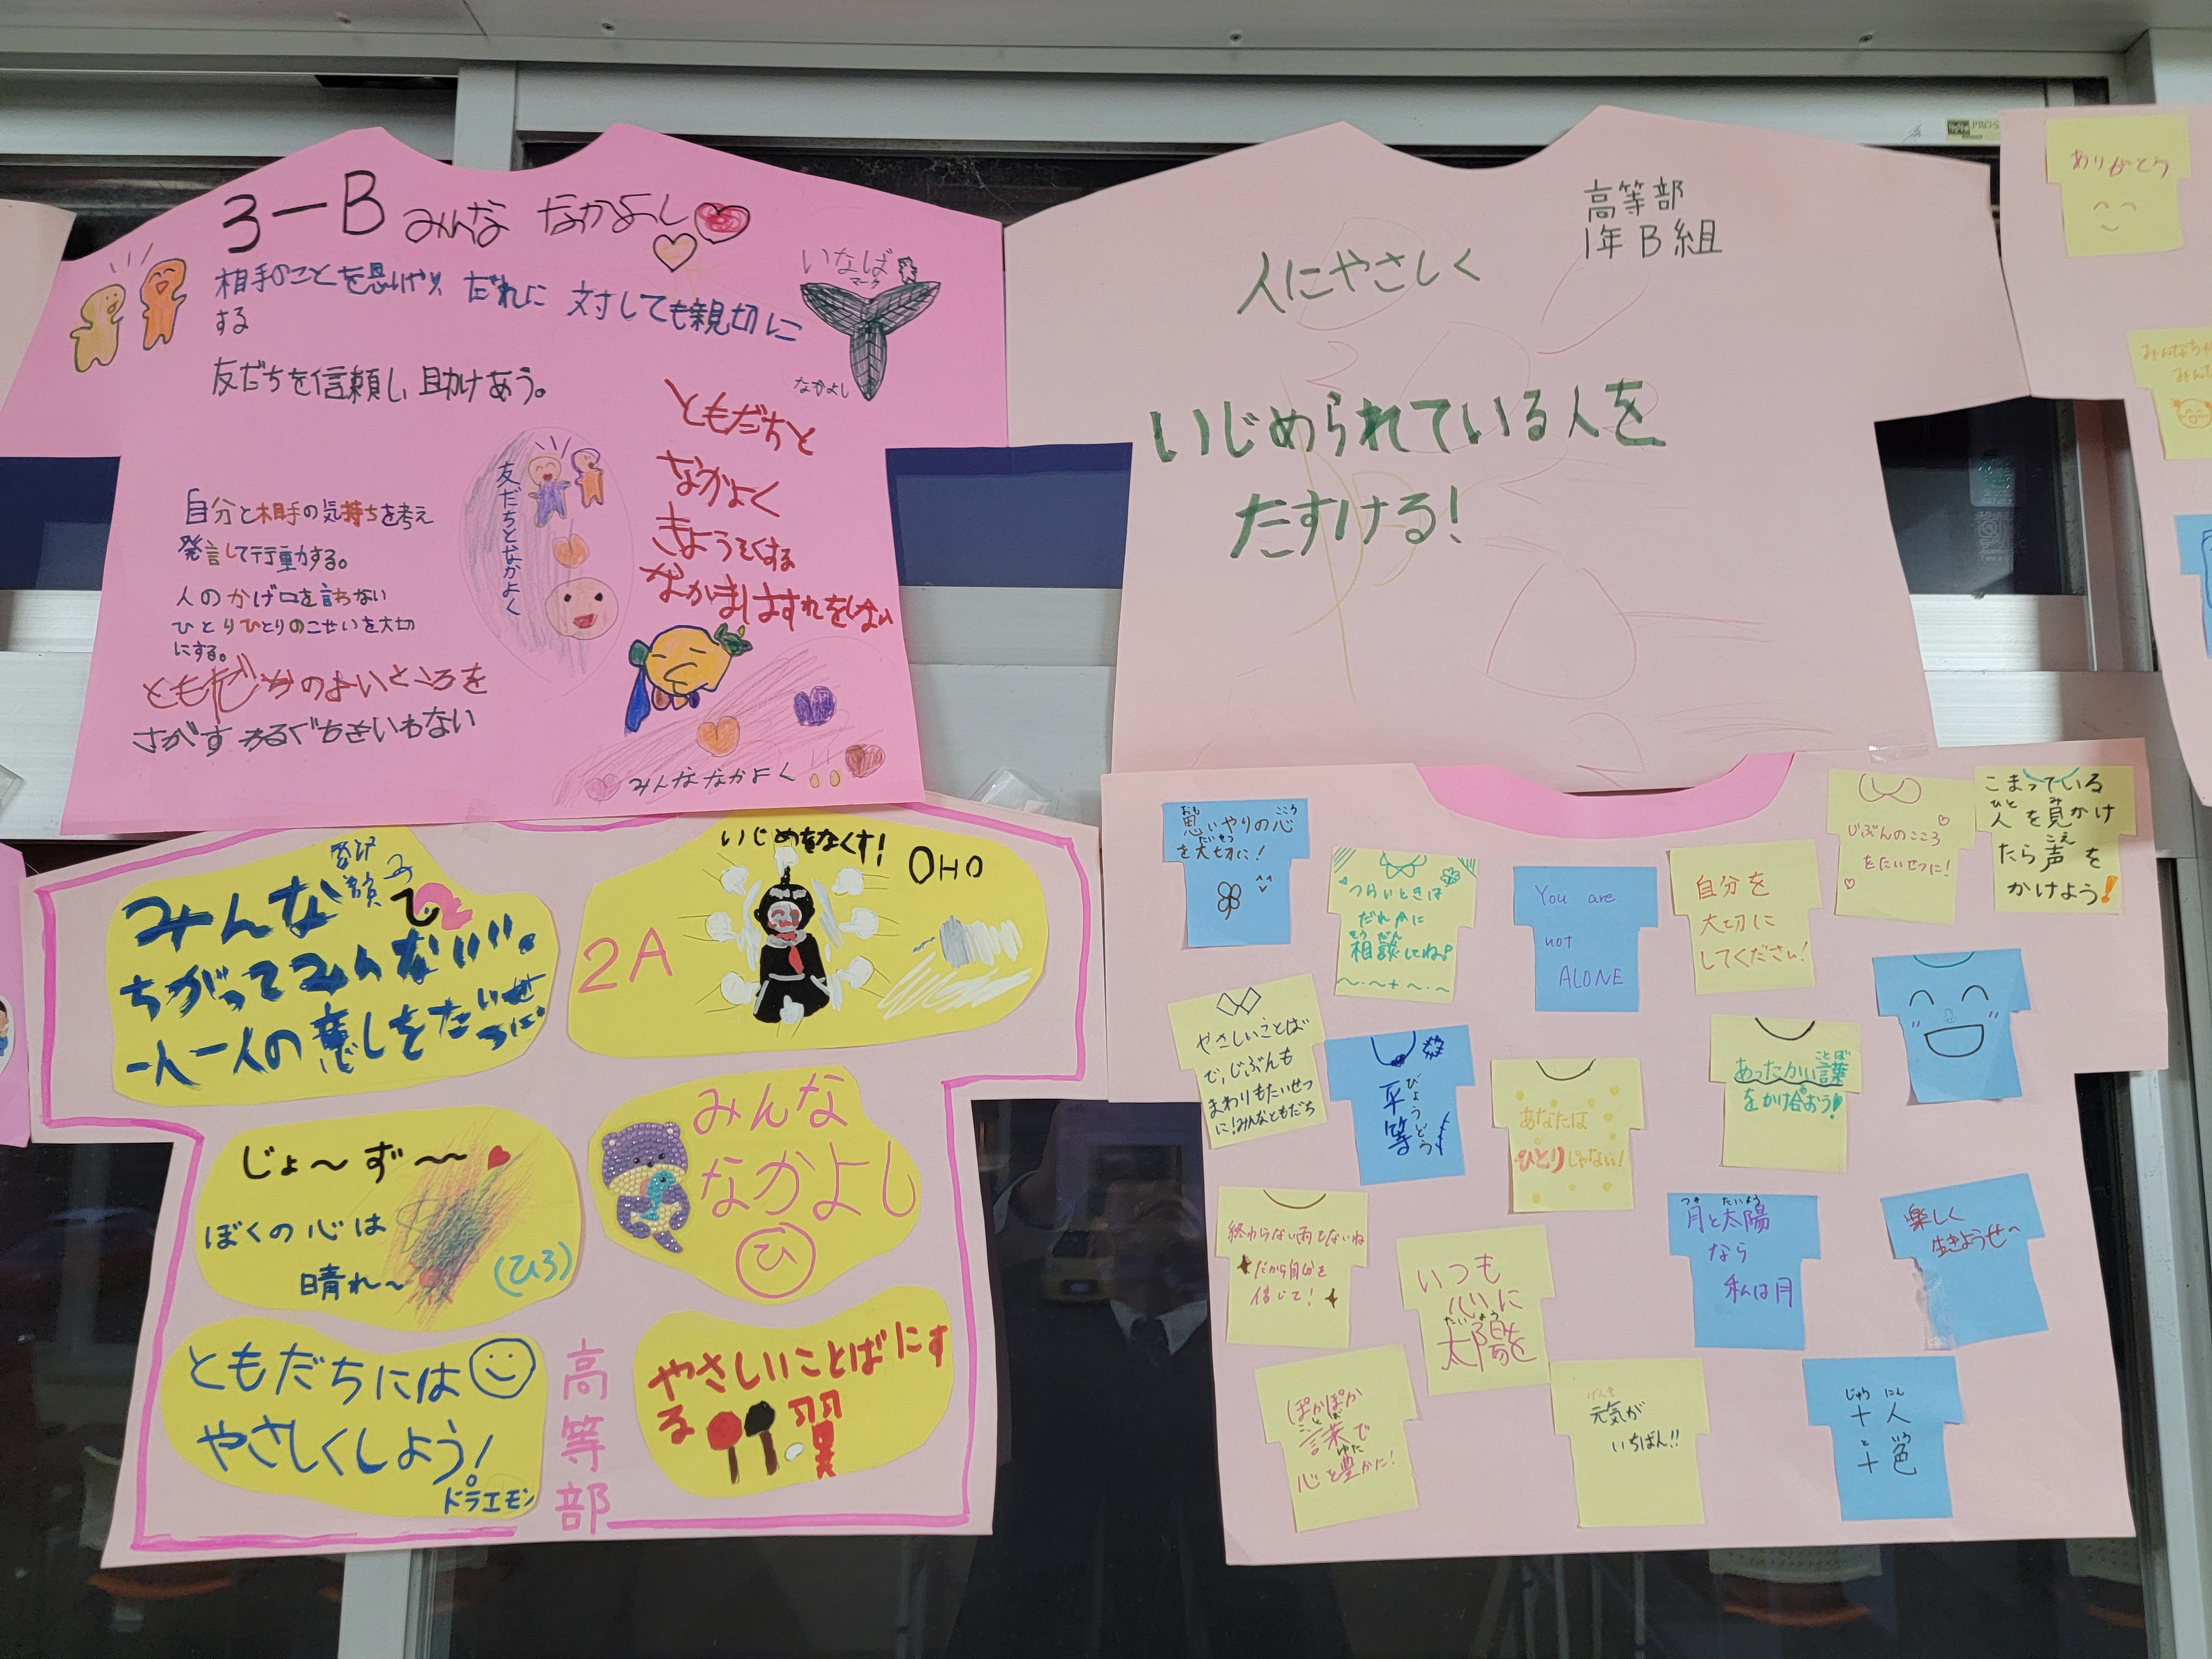 3-B みんな なかよし
相手のことを思いやり、だれに 対しても親切に
する
いなば
マーク
なかよし
友だちを信頼し 助けあう。
ともだちと
なかよく
きょうそくする
なかまはずれをしない
友だちとなかよく
自分と相手の気持ちを考え
発言して行動する。
人のかげ口を言わない
ひとりひとりのこせいを大切
にする。
ともだちのよいところを
さがす わるぐちをいわない
みんな なかよく !!
高等部
1年B組
人にやさしく
いじめられている人を
たすける!
ありがとう
みんな
ちがってみんないい。
一人一人の
いじめをなくす!
OHO
2A
じょ〜ず〜
ぼくの心は
晴れ〜
(ひろ)
みんな
なかよし
ひ
ともだちには
やさしくしよう!
ドラエモン
高等部
やさしいことばにす
る
思いやりの心
おも こころ
を大切に!
たいせつ
つらいときは
だれかに
相談してね♪
そうだん
You are
not
ALONE
自分を
大切に
してください!
じぶんのこころ
をたいせつに!
こまっている
人を見かけ
ひと み
たら声を
こえ
かけよう!
やさしいことば
で、じぶんも
まわりもたいせつ
に!みんなともだち
平等
びょうどう
あなたは
ひとりじゃない!
あったかい言葉
ことば
をかけ合おう!
終わらない雨はないね
だから自分を
信じて!
いつも
心に
太陽を
たいよう
月と太陽
つき たいよう
なら
私は月
楽しく
生きようぜ〜
ぽかぽか
言葉で
ことば
心を豊かに!
ゆた
元気が
げんき
いちばん!!
十人
じゅう にん
十色
と いろ